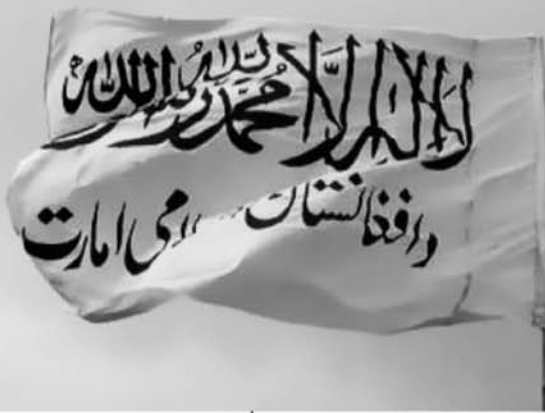 لا إله إلا الله محمد رسول الله
دافغانستان اسلامی امارت